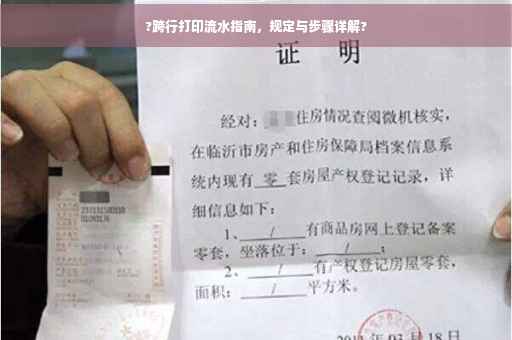 ?跨行打印流水指南，规定与步骤详解?
证 明
经对：住房情况查阅微机核实，
在临沂市房产和住房保障局档案信息系
统内现有 零 套房屋产权登记记录，详
细信息如下：
1、 / 有商品房网上登记备案
零套，坐落位于： / ；
2、 / 有产权登记房屋零套，
面积： / 平方米。